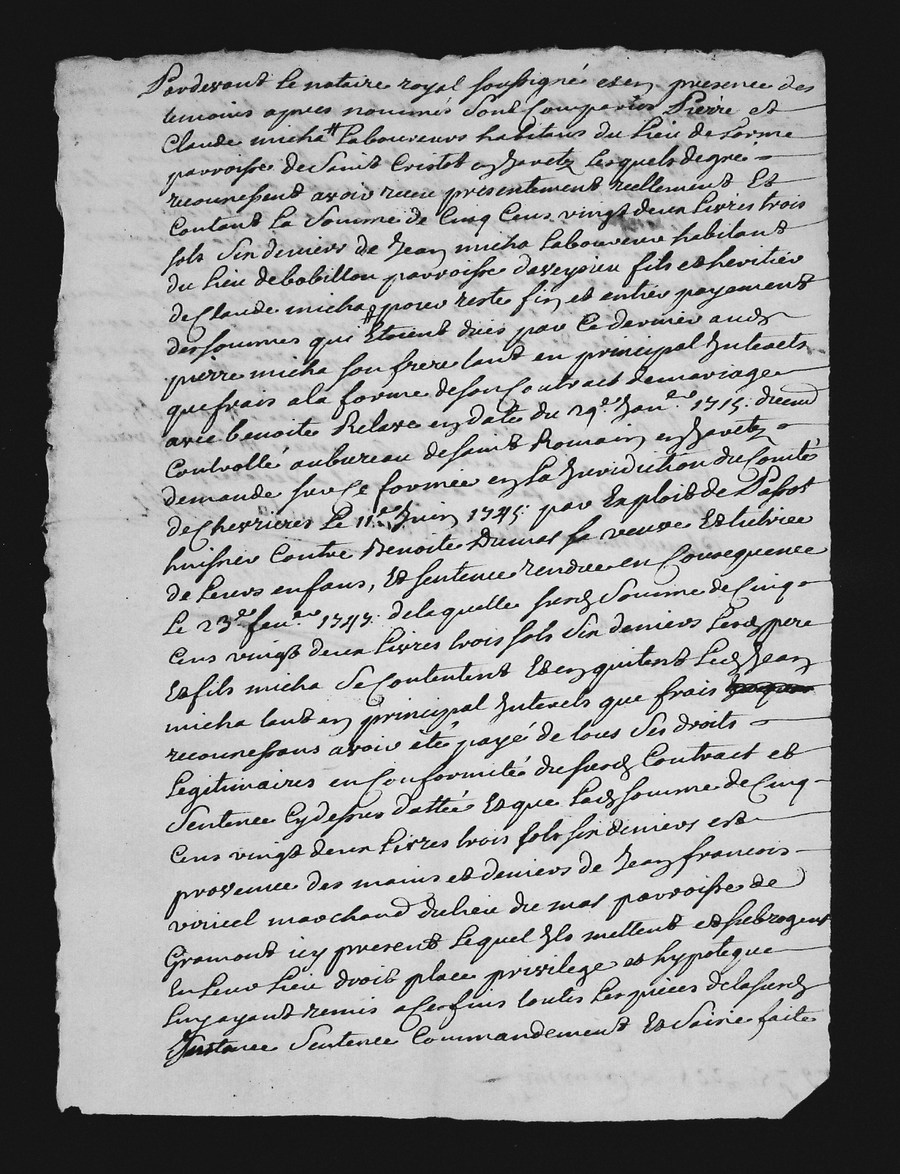 Pardevant le notaire royal soussigné et en presence des
temoins apres nommés sont Comparus Pierre et
Claude micha Laboureurs habitans du lieu de Lorme
parroisse de Saint Cristot en Jaretz lesquels de gré
reconnessent avoir receu presentement reellement Et
Contant La Somme de Cinq Cens vingt deux Livres trois
sols Six deniers de Jean micha Laboureur habitant
du lieu de bobillon parroisse daveyzieu fils et heritier
de Claude micha pour reste fin et entier payement
des sommes qui Etoient dues par Ce dernier aud
pierre micha son frere tant en principal Interets
que frais a la forme de son Contrat de mariage
avec benoite Relave en datte du 29e Janer 1715:
Controllé au bureau de Saint Romain en Jaretz
demande sur Ce formée en La Juridiction du Comté
de Chevrieres Le 11e Juin 1745: par Exploit de
huissier Contre Benoite Dumas sa veuve Et tutrice
de Leurs enfans, Et Sentence rendue en Consequence
Le 23e feuer 1747: de laquelle susd Somme de Cinq
Cens vingt deux Livres trois sols Six deniers Lesd pere
Et fils micha Se Contentent Et en quitent Led Jean
micha tant en principal Interets que frais
reconnessans avoir été payé de tous Ses droits
Legitimaires en Conformité du susd Contract et
Sentence Cy dessus dattée Et que Lad somme de Cinq
Cens vingt deux Livres trois sols six deniers est
provenue des mains et deniers de Jean francois
viricel marchand du lieu du mas parroisse de
Gramont icy present Lequel Ils mettent et subrogent
En Leur Lieu droit place privilege et hypoteque
Luy ayant remis a Ces fins toutes Les pieces de la susd
Instance Sentence Commandement Et Saisie faite